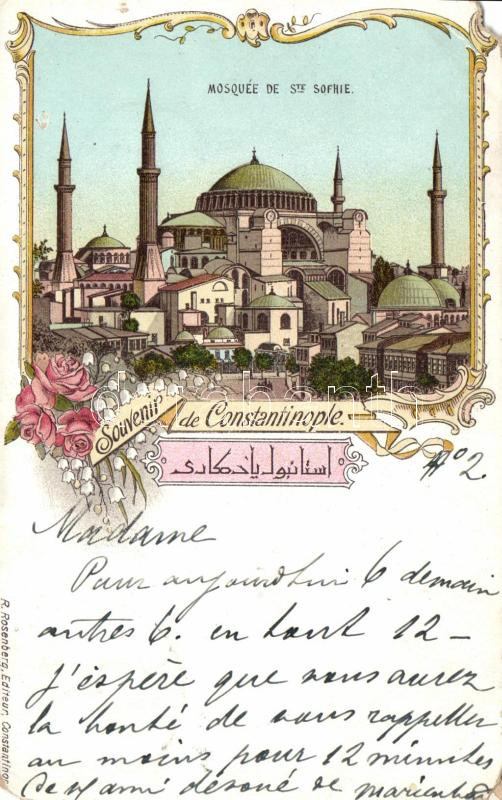 MOSQUÉE DE STE SOFHIE.
Souvenir de Constantinople.
استانبول یادکاری
No 2.
Madame
Pour aujourd'hui 6 demain
autres 6. en tout 12 –
J'espère que vous aurez
la bonté de vous rappeller
au moins pour 12 minutes
de l'ami dévoué de Marienbad
R. Rosenberg, Editeur, Constantinop
darabanth